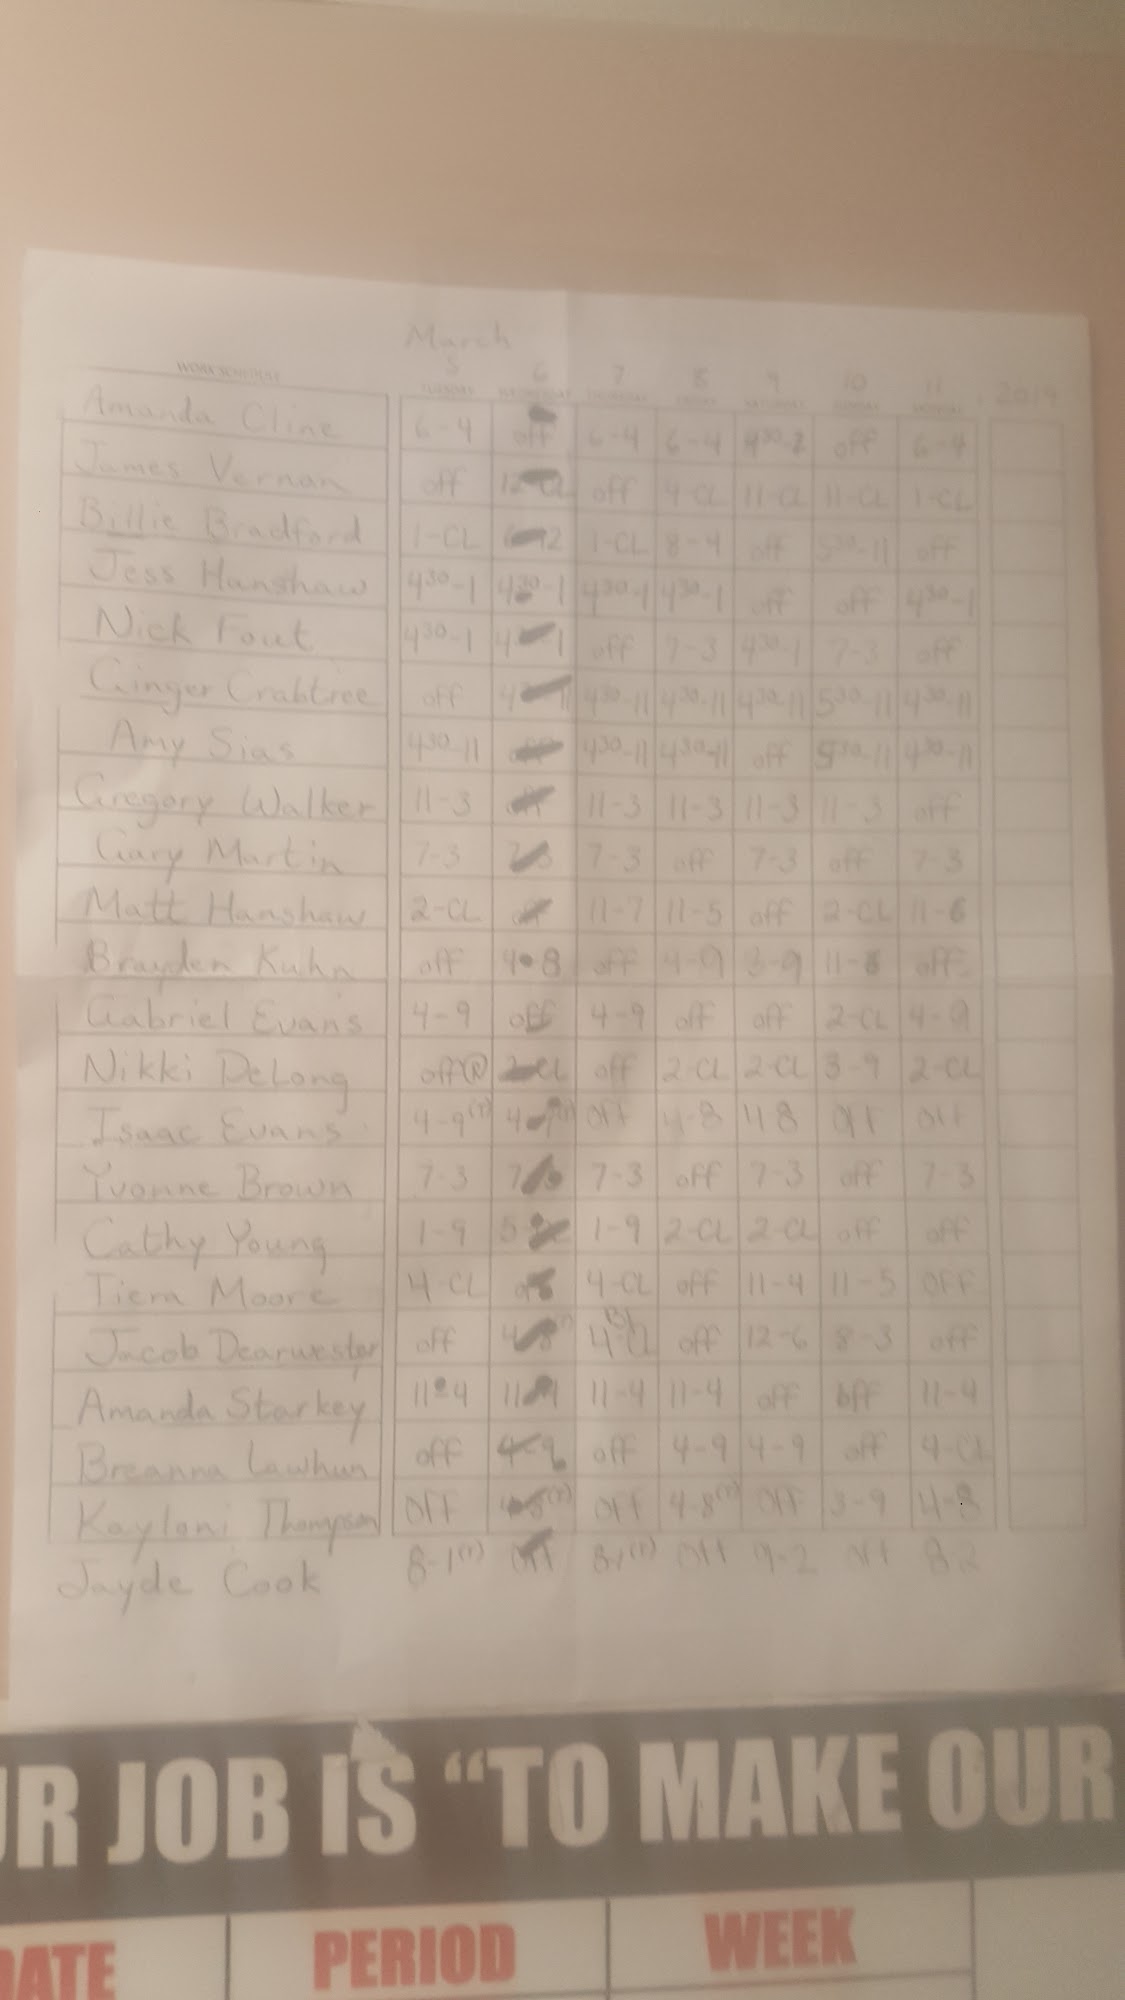 March
WORK SCHEDULE 5 6 7 8 9 10 11 2019
TUESDAY WEDNESDAY THURSDAY FRIDAY SATURDAY SUNDAY MONDAY
Amanda Cline 6-4 off 6-4 6-4 4³⁰-2 off 6-4
James Vernan off 12-CL off 4-CL 11-CL 11-CL 1-CL
Billie Bradford 1-CL 1-CL 8-4 off 5³⁰-11 off
Jess Hanshaw 4³⁰-1 4³⁰-1 4³⁰-1 4³⁰-1 off off 4³⁰-1
Nick Fout 4³⁰-1 off 7-3 4³⁰-1 7-3 off
Ginger Crabtree off 4³⁰-11 4³⁰-11 4³⁰-11 5³⁰-11 4³⁰-11
Amy Sias 4³⁰-11 4³⁰-11 4³⁰-11 off 5³⁰-11 4³⁰-11
Gregory Walker 11-3 11-3 11-3 11-3 11-3 off
Gary Martin 7-3 7-3 7-3 off 7-3 off 7-3
Matt Hanshaw 2-CL 11-7 11-5 off 2-CL 11-6
Brayden Kuhn off 4-8 off 4-9 3-9 11-8 off
Gabriel Evans 4-9 off 4-9 off off 2-CL 4-9
Nikki DeLong off(R) 2-CL off 2-CL 2-CL 3-9 2-CL
Isaac Evans 4-9(T) off 4-8 4-8 off off
Yvonne Brown 7-3 7-3 off 7-3 off 7-3
Cathy Young 1-9 1-9 2-CL 2-CL off off
Tiera Moore 4-CL off 4-CL off 11-4 11-5 OFF
Jacob Dearwester off 4-CL off 12-6 8-3 off
Amanda Starkey 11-4 11-4 11-4 11-4 off off 11-4
Breanna Lawhun off 4-9 off 4-9 4-9 off 4-CL
Kayloni Thompson OFF OFF 4-8(T) OFF 3-9 4-8
Jayde Cook 8-1(T) off 8-1(T) off 9-2 off 8-2
UR JOB IS “TO MAKE OUR
DATE PERIOD WEEK